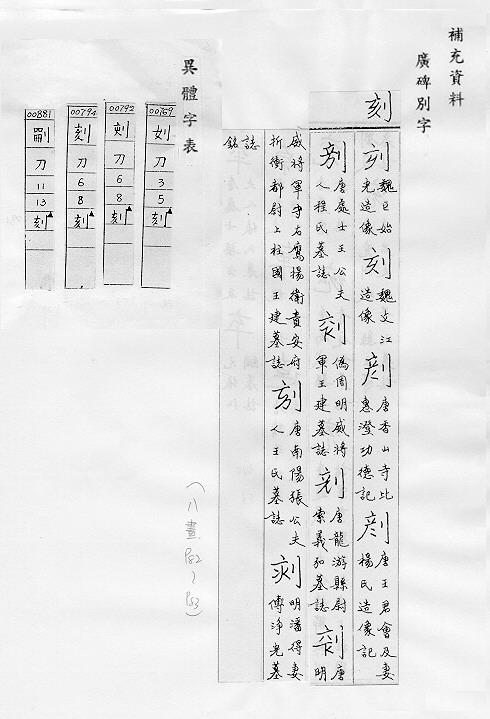 補充資料
廣碑別字
刻
刻 魏巨始光造像 刻 魏文江造像 唐香山寺比惠澄功德記 唐王君會及妻楊氏造像記
唐處士王公夫人程氏墓誌 偽周明威將軍王建墓誌 唐龍游縣尉索義弘墓誌 唐明
威將軍守右鷹揚衛貴安府折衝都尉上柱國王建墓誌 唐南陽張公夫人王氏墓誌 明潘得妻傅淨光墓
誌銘
異體字表
00769 刀 3 5 刻▲
00792 刀 6 8 刻▲
00794 刻 刀 6 8 刻▲
00881 刀 11 13 刻▲
(八畫 P82、P83)